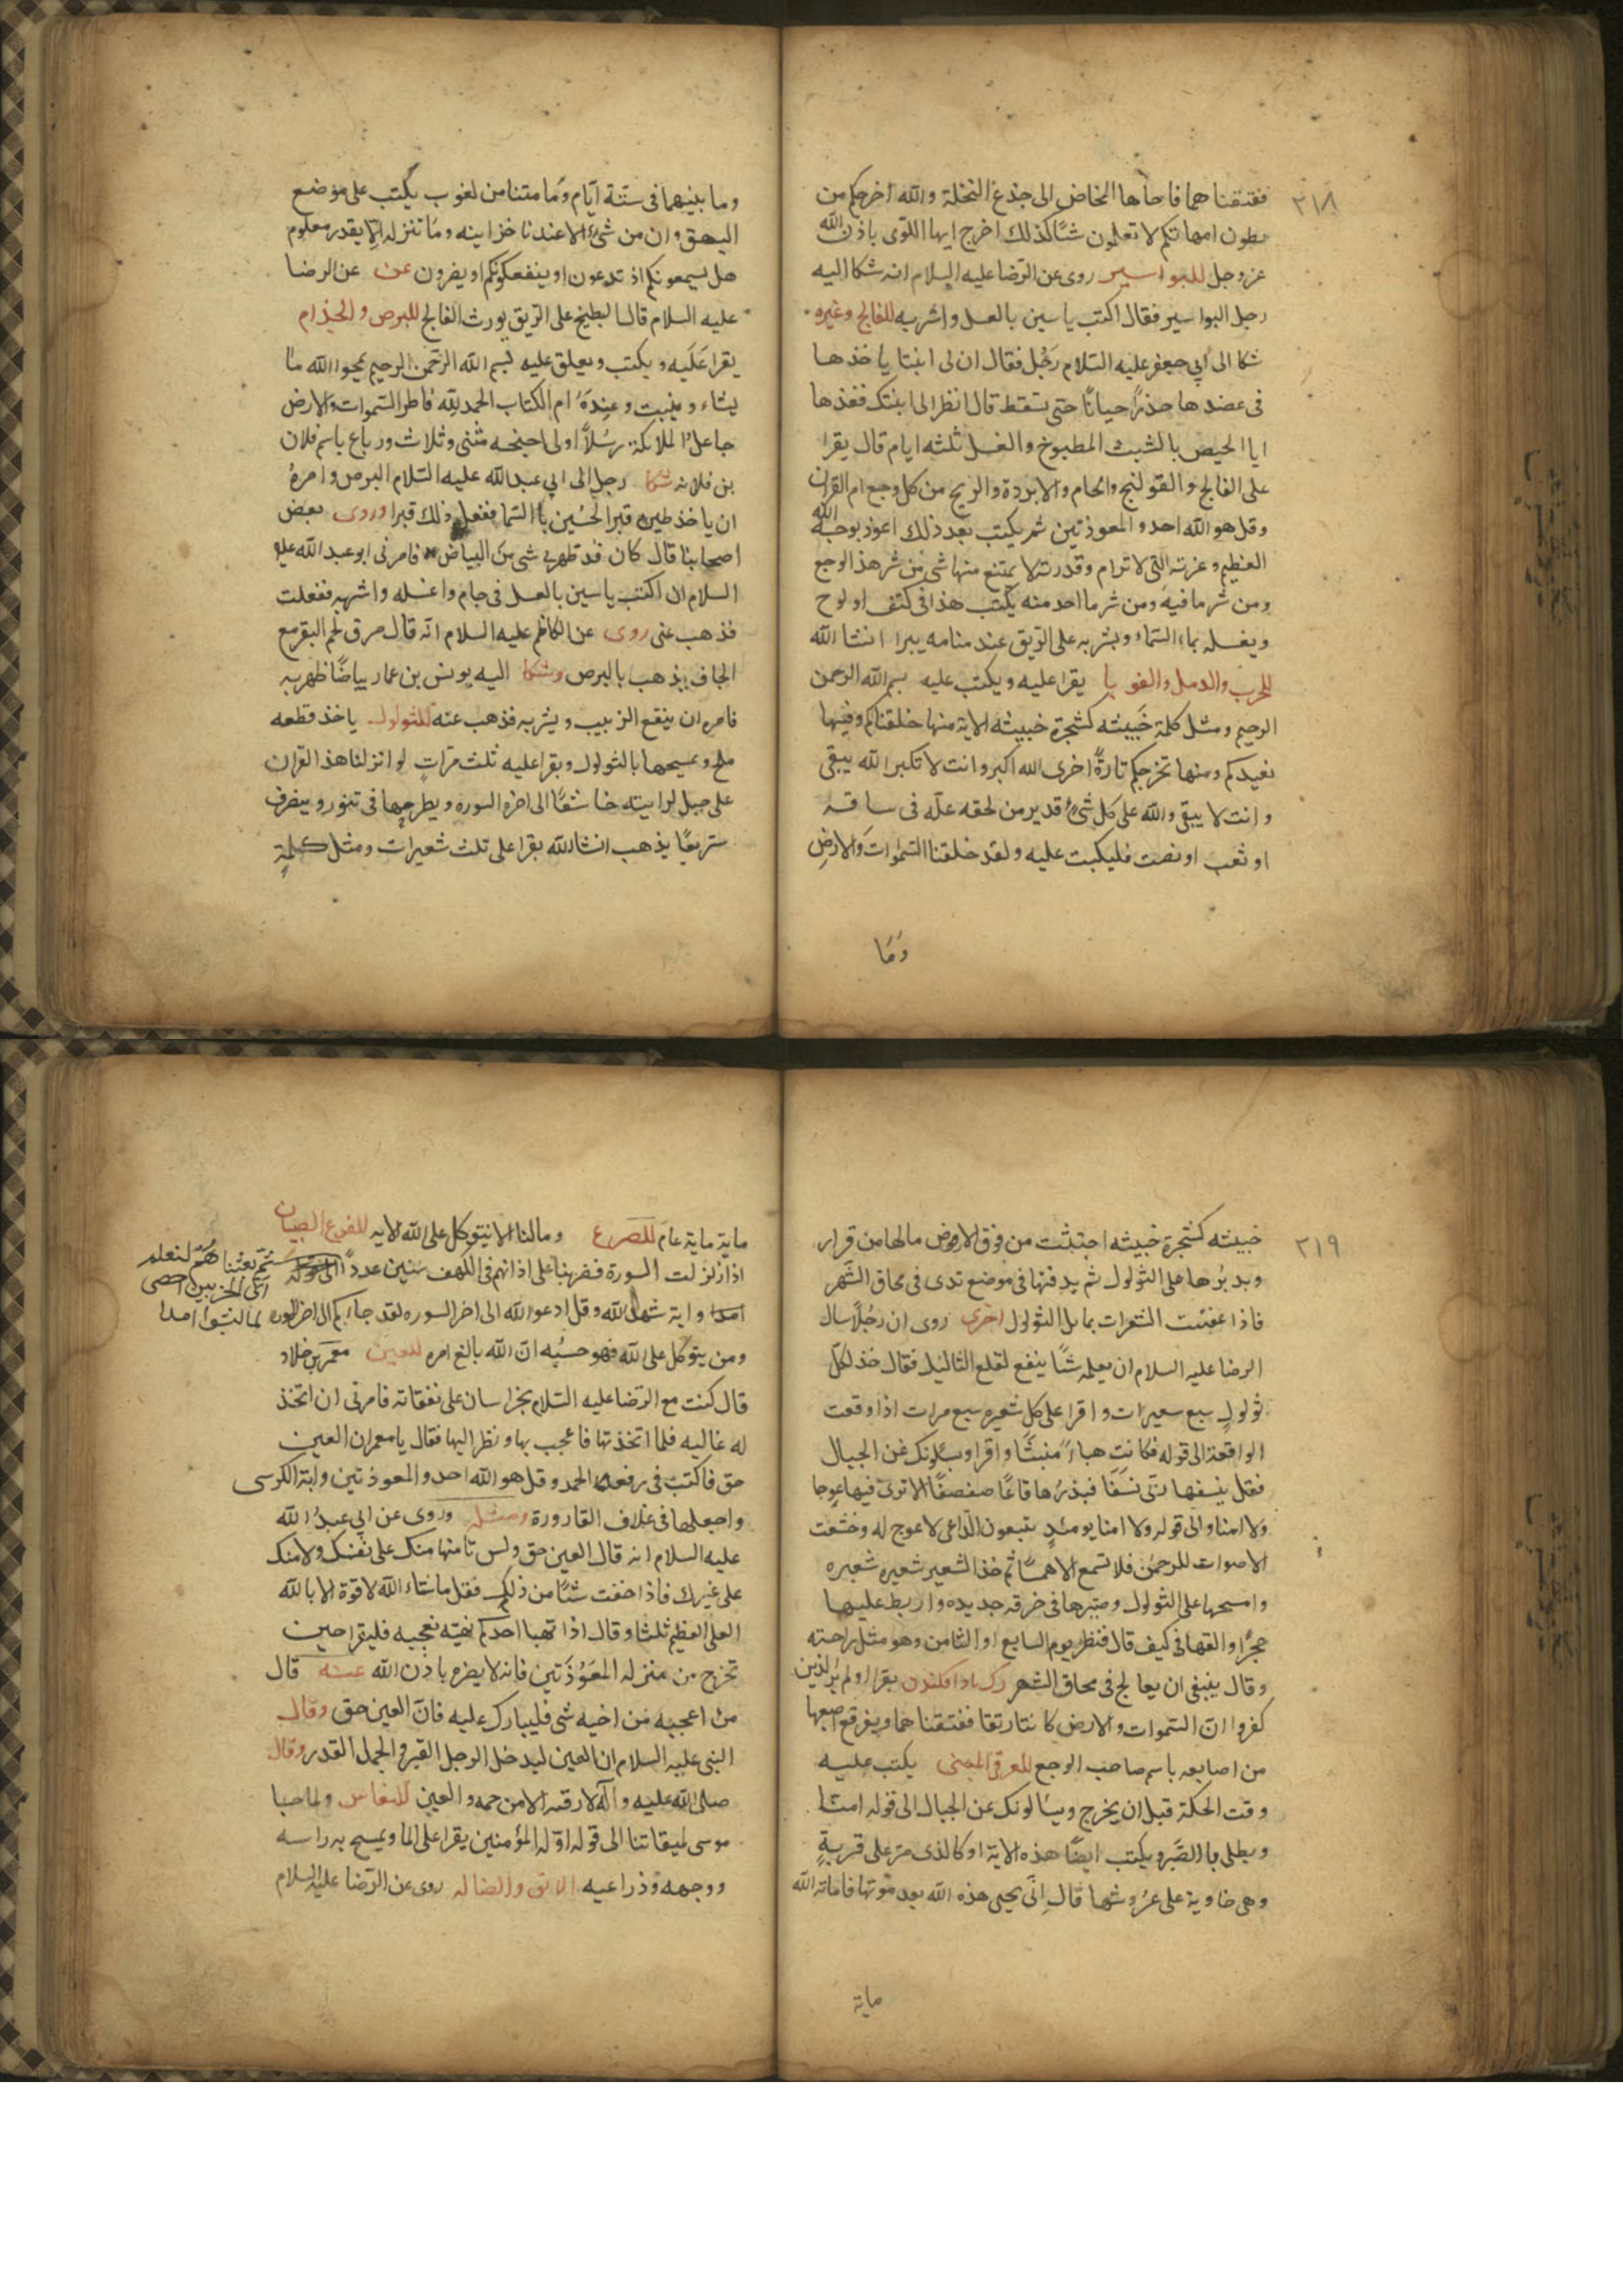 ٢١٨
ففتقناهما فاجاءها المخاض الى جذع النخلة والله اخرجكم من
بطون امهاتكم لا تعلمون شيئا كذلك اخرج ايها اللوى باذن الله
عزوجل للبواسير روى عن الرضا عليه السلام انه شكا اليه
رجل البواسير فقال اكتب ياسين بالعسل واشربه للفالج وغيره
شكا الى ابي جعفر عليه السلام رَجُل فقال ان لى ابنتا ياخذها
فى عضدها خدر احيانًا حتى تسقط قال انظر الى ابنتك فغذها
ايا الحيض بالشبث المطبوخ والعسل ثلثه ايام قال يقرا
على الفالج والقولنج والحام والابردة والريح من كل وجع ام القران
وقل هو الله احد والمعوذتين ثم يكتب بعد ذلك اعوذ بوجه الله
العظيم وعزته التى لا ترام وقدرته لا يمتنع منها شى من شر هذا الوجع
ومن شر ما فيه ومن شر ما احد منه يكتب هذا فى كتف او لوح
ويغسله بماء السماء ويشربه على الريق عند منامه يبرا انشا الله
للجرب والدمل والقوبا يقرا عليه ويكتب عليه بسم الله الرحمن
الرحيم ومثل كلمة خَبيثه كشجرة خبيثه الاية منها خلقناكم وفيها
نعيدكم ومنها نخرجكم تارةً اخرى الله اكبر وانت لا تكبر الله يبقى
وانت لا يبقى والله على كل شىء قدير من لحقه علة فى ساقه
او تعب او نصب فليكبت عليه ولقد خلقنا السموات وَالارضِ
وَمَا
وما بينهما فى ستة ايّام وَما مسنا من لغوب يكتب على موضع
البهق وان من شىء الا عندنا خزاينه وما ننزله الا بقدر معلوم
هل يسمعونكم اذ تدعون او ينفعكونكم او يضرون عن عن الرضا
عليه السلام قال البطيخ على الريق يورث الفالج للبرص والجذام
يقرا عَليه ويكتب ويعلق عليه بسم الله الرحمن الرحيم يمحوا الله ما
يشاء ويثبت وعندهُ ام الكتاب الحمد لله فاطر السموات والارض
جاعل الملائكة رسلًا اولى اجنحه مثنى وثلاث ورباع باسم فلان
بن فلانه شكا رجل الى ابى عبد الله عليه السلام البرص وامرهُ
ان ياخذ طين قبر الحُسَين بماء السما ففعل ذلك فبرا وروى بعض
اصحابنا قال كان قد ظهر بى شى من البياض فامرنى ابو عبد الله عليه
السلام ان اكتب ياسين بالعسل فى جام واغسله واشربه ففعلت
فذهب عنى روى عن الكاظم عليه السلام انّه قال مرق لحم البقر مع
الجاف يذهب بالبرص وشكا اليه يونس بن عمار بياضًا ظهر به
فامره ان ينقع الزبيب ويشربه فذهب عنه للثولول ياخذ قطعه
ملح ويمسحها بالثولول ويقرا عليه ثلث مرّاتٍ لو انزلنا هذا القران
على جبل لرايته خاشعًا الى اخره السوره ويطرحها فى تنور وينصرف
سريعًا يذهب انشا الله يقرا على ثلث شعيرات ومثل كلمةٍ
٢١٩
خبيثه كشجرة خبيثه اجتثت من فوق الارض مالها من قرار
ويدبّرها على الثولول ثم يدفنها فى موضع ندى فى محاق الشهر
فاذا عفنت الشعرات تمايل الثولول اخرى روى ان رجُلًا سال
الرضا عليه السلام ان يعلمه شئًا ينفع لقلع الثاليل فقال خذ لكل
ثولولٍ سبع سعيرات واقرا على كل شعيره سبع مرات اذا وقعت
الواقعة الى قوله فكانت هباءً منبثًا واقرا ويسئلونك عن الجبال
فقل ينسفها ربّى نسفًا فيذرُها قاعًا صفصفًا لا ترى فيها عوجا
ولا امتا والى قوله ولا امتا يومئذٍ يتبعون الداعى لا عوج له وخشعت
الاصوات للرحمن فلا تسمع الا همسًا ثم خذ الشعير شعيره شعيره
وامسحها على الثولول وصيرها فى خرقه جديده واربط عليها
حجرًا والقها فى كنيف قال فنظر يوم السابع او الثامن وهو مثل راحته
وقال ينبغى ان يعالج فى محاق الشهر يقرا اولم ير الذين
كفروا انّ السموات والارض كانتا رتقا ففتقناهما ويفرقع اصبعها
من اصابعه باسم صاحب الوجع للعرق المدنى يكتب عليه
وقت الحكة قبل ان يخرج ويسالونك عن الجبال الى قوله امتا
ويطلى بالصَّبر ويكتب ايضًا هذه الاية او كالذى مرّ على قريةٍ
وهى خاوية على عرُوشها قال انّى يحيى هذه الله بعد مَوتها فاماته الله
ماية
ماية ماية عام للصرع ومالنا الا نتوكل على الله الايه للفزع الصبيان
اذا زلزلت السورة فضربنا على اذانهم فى الكهف سنين عددًا ثمّ بعثناهُم لنعلم
اىّ الحزبين احصى
امدا واية شهد الله وقل ادعوا الله الى اخر السوره لقد جاءكم الى اخر السوره لما لبثوا امدا
ومن يتوكل على الله فهو حسبُه انّ الله بالغ امره للعين معمر بن خلاد
قال كنت مع الرّضا عليه السّلام بخراسان على نفقاته فامرنى ان اتخذ
له غاليه فلما اتخذتها فاعجب بها ونظر اليها فقال يا معمر ان العين
حق فاكتب فى رقعه الحمد وقل هو الله احد والمعوذتين واية الكرسى
واجعلها فى غلاف القارورة ومثله وروى عن ابى عبدُ الله
عليه السلام انه قال العين حق ولس تامنها منك على نفسك ولا منك
على غيرك فاذا خفت شئًا من ذلك فقل ما شاء الله لا قوة الا بالله
العلى العظيم ثلثا وقال اذا تهيا احدكم تهيئه تعجبه فليقرا حين
تخرج من منزله المعَوّذَتين فانه لا يضره باذن الله عنه قال
من اعجبه من اخيه شى فليبارك عليه فانّ العين حق وقال
النبى عليه السلام ان العين ليدخل الرجل القبر والجمل القدر وقال
صلى الله عليه وآله لا رقيه الا من حمه والعين للنعاس ولما جا
موسى لميقاتنا الى قوله اوّل المؤمنين يقرا على الما ويمسح به راسه
ووجهه وذراعيه الابق والضاله روى عن الرّضا عليه السلام